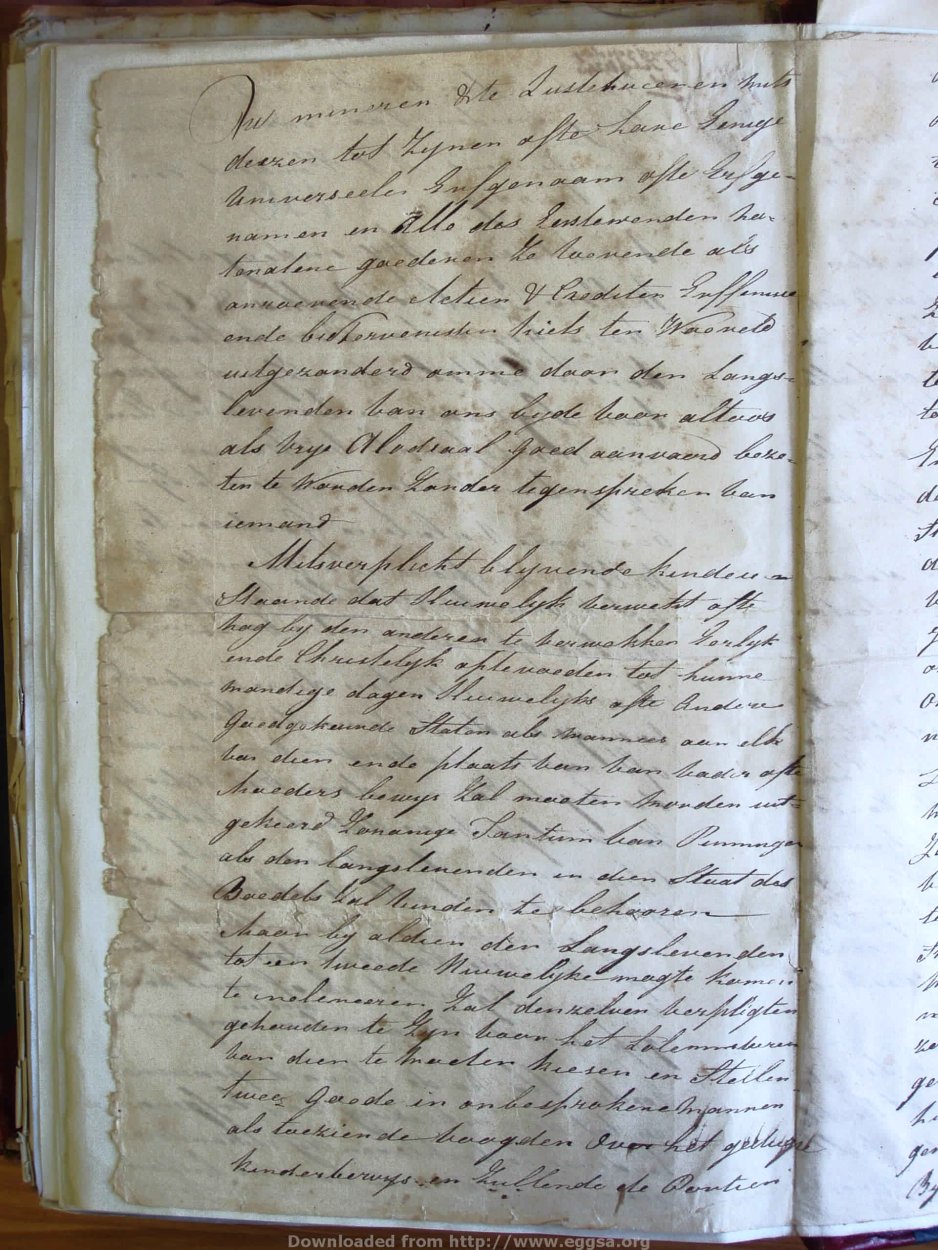 mineren & te Institueeren mits
deezen tot Zynen ofte hare Eenige
Universeele Erfgenaam ofte Erfge-
namen in Alle des Eerstervenden na-
goederen Zo roerende als
onroerende Actien & Crediten
ende niets ter Waereld
uitgezonderd omme door den Langs-
levenden van ons byde voor altoos
als vrye Alodiaal goed aanvaard beze-
ten te Worden Zonder tegenspreken van
iemand
Mits verplicht blyvende kinderen
Staande dat Huuwelyk verwekt ofte
nog by den anderen te verwekken Eerlyk
ende Christelyk optevoeden tot hunne
mondige dagen Huuwelyks ofte Andere
Goedgekeurde Staten als wanneer aan elk
van dien ende plaats van van vader ofte
Moeders bewys Zal moeten worden uit-
gekeerd Zodanige Tantum van Penningen
als den langslevenden in den Staat des
Boedels Zal vinden te behooren
Maar by aldien den Langslevenden
tot een tweede Huuwelyke mogte komen
te inclineeren Zal denzelven verpligten
gehouden te Zyn voor het Solemniseren
van dien te moeten kiesen en Stellen
twee Goede en onbesprokene mannen
als toeziende voogden Over het
kinderbewys en Zullende de Portien
Downloaded from http://www.eggsa.org